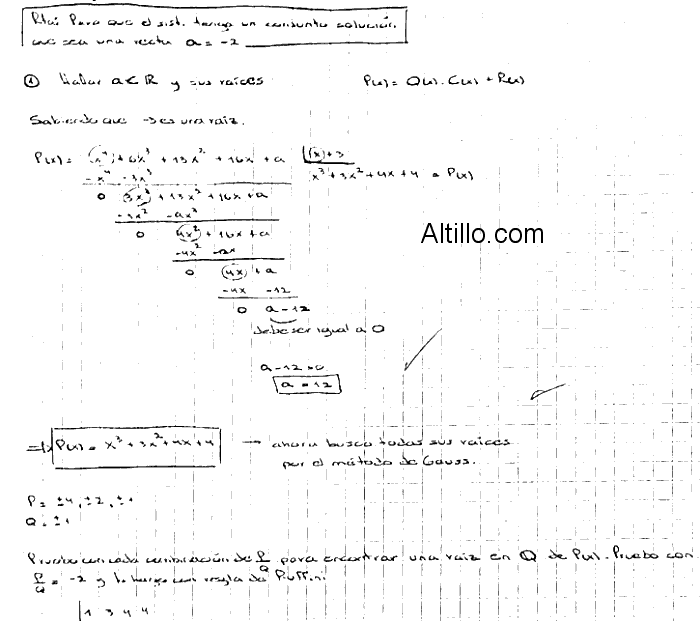 Rta: Para que el sist. tenga un conjunto solución
que sea una recta a = -2
① Hallar a ∈ R y sus raíces P(x) = Q(x). C(x) + R(x)
Sabiendo que -3 es una raíz.
P(x) = (x⁴) + 6x³ + 13x² + 16x + a |(x)+3
-x⁴ -3x³ x³ + 3x² + 4x + 4 = P(x)
0 (3x³) + 13x² + 16x + a
-3x³ -9x²
0 (4x²) + 16x + a
-4x² -12x
0 (4x) + a
-4x -12
0 a - 12
debe ser igual a 0
Altillo.com
a - 12 = 0
a = 12
=> P(x) = x³ + 3x² + 4x + 4 → ahora busco todas sus raíces
por el método de Gauss.
P = ±4, ±2, ±1
Q = ±1
Pruebo con cada combinación de P/Q para encontrar una raíz en Q de P(x). Pruebo con
P/Q = -2 y lo hago con regla de Ruffini
1 3 4 4